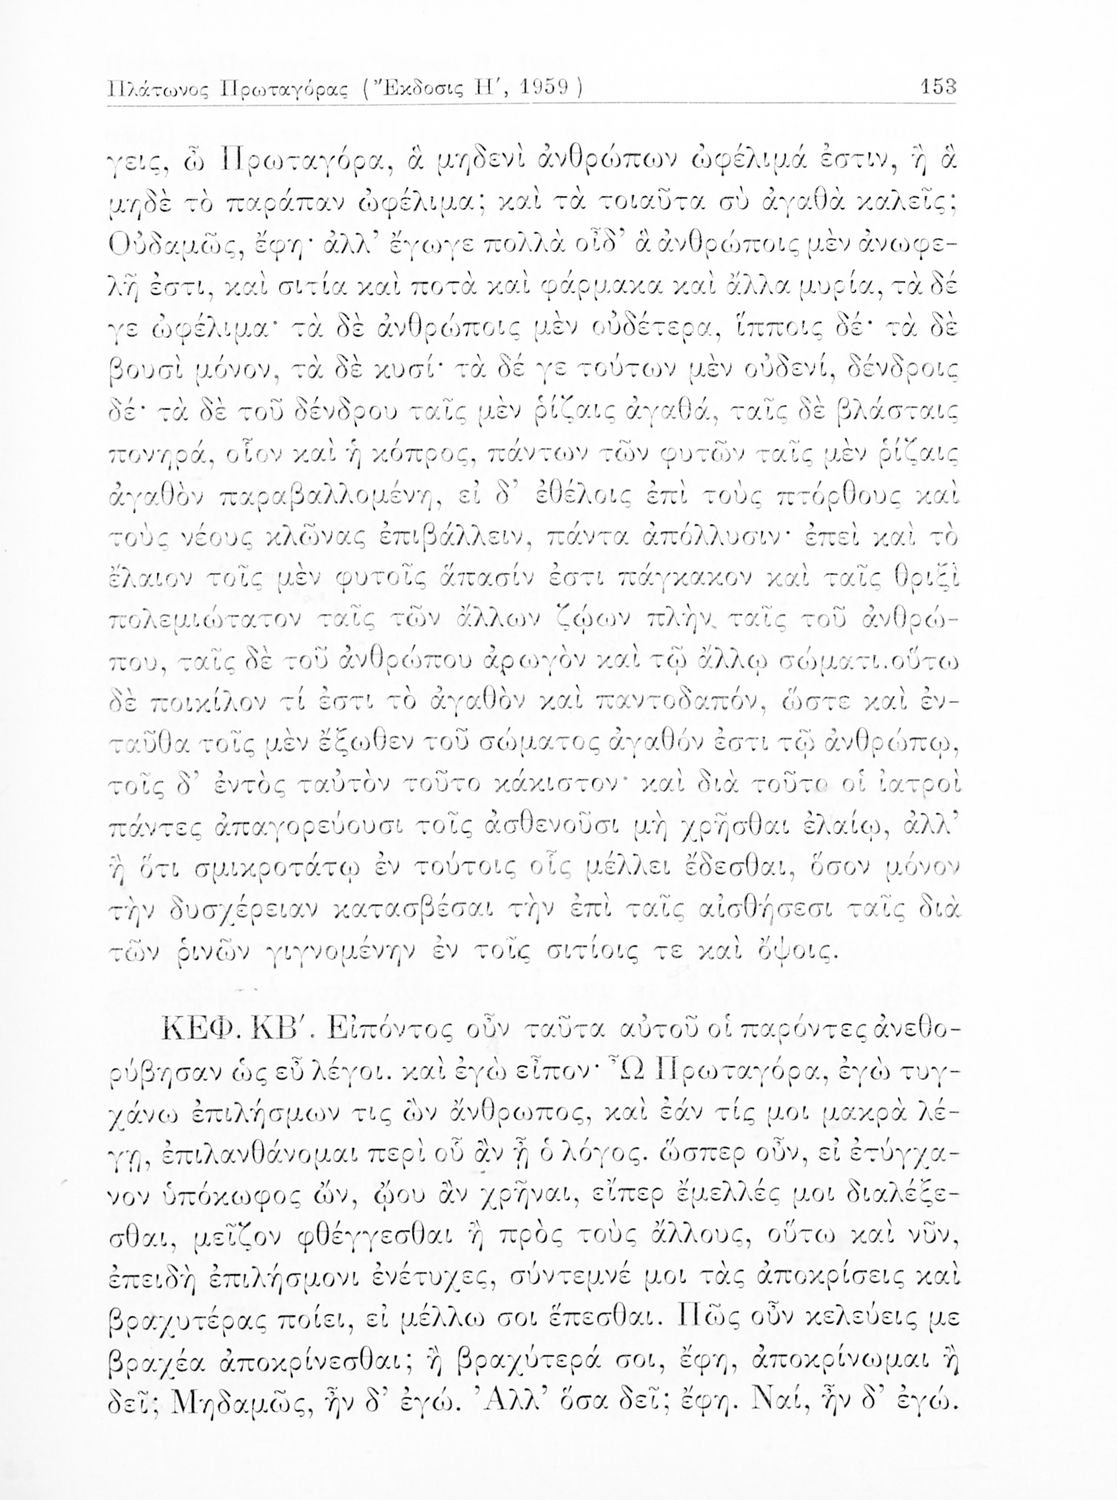 Πλάτωνος Πρωταγόρας ( Ἔκδοσις Η΄, 1959 ) 153
γεις, ὦ Πρωταγόρα, ἃ μηδενὶ ἀνθρώπων ὠφέλιμά ἐστιν, ἢ ἃ
μηδὲ τὸ παράπαν ὠφέλιμα; καὶ τὰ τοιαῦτα σὺ ἀγαθὰ καλεῖς;
Οὐδαμῶς, ἔφη· ἀλλ’ ἔγωγε πολλὰ οἶδ’ ἃ ἀνθρώποις μὲν ἀνωφε-
λῆ ἐστι, καὶ σιτία καὶ ποτὰ καὶ φάρμακα καὶ ἄλλα μυρία, τὰ δέ
γε ὠφέλιμα· τὰ δὲ ἀνθρώποις μὲν οὐδέτερα, ἵπποις δέ· τὰ δὲ
βουσὶ μόνον, τὰ δὲ κυσί· τὰ δέ γε τούτων μὲν οὐδενί, δένδροις
δέ· τὰ δὲ τοῦ δένδρου ταῖς μὲν ῥίζαις ἀγαθά, ταῖς δὲ βλάσταις
πονηρά, οἷον καὶ ἡ κόπρος, πάντων τῶν φυτῶν ταῖς μὲν ῥίζαις
ἀγαθὸν παραβαλλομένη, εἰ δ’ ἐθέλοις ἐπὶ τοὺς πτόρθους καὶ
τοὺς νέους κλῶνας ἐπιβάλλειν, πάντα ἀπόλλυσιν· ἐπεὶ καὶ τὸ
ἔλαιον τοῖς μὲν φυτοῖς ἅπασίν ἐστι πάγκακον καὶ ταῖς θριξὶ
πολεμιώτατον ταῖς τῶν ἄλλων ζῴων πλὴν ταῖς τοῦ ἀνθρώ-
που, ταῖς δὲ τοῦ ἀνθρώπου ἀρωγὸν καὶ τῷ ἄλλῳ σώματι.οὕτω
δὲ ποικίλον τί ἐστι τὸ ἀγαθὸν καὶ παντοδαπόν, ὥστε καὶ ἐν-
ταῦθα τοῖς μὲν ἔξωθεν τοῦ σώματος ἀγαθόν ἐστι τῷ ἀνθρώπῳ,
τοῖς δ’ ἐντὸς ταὐτὸν τοῦτο κάκιστον· καὶ διὰ τοῦτο οἱ ἰατροὶ
πάντες ἀπαγορεύουσι τοῖς ἀσθενοῦσι μὴ χρῆσθαι ἐλαίῳ, ἀλλ’
ἢ ὅτι σμικροτάτῳ ἐν τούτοις οἷς μέλλει ἔδεσθαι, ὅσον μόνον
τὴν δυσχέρειαν κατασβέσαι τὴν ἐπὶ ταῖς αἰσθήσεσι ταῖς διὰ
τῶν ῥινῶν γιγνομένην ἐν τοῖς σιτίοις τε καὶ ὄψοις.
ΚΕΦ. ΚΒ΄. Εἰπόντος οὖν ταῦτα αὐτοῦ οἱ παρόντες ἀνεθο-
ρύβησαν ὡς εὖ λέγοι. καὶ ἐγὼ εἶπον· Ὦ Πρωταγόρα, ἐγὼ τυγ-
χάνω ἐπιλήσμων τις ὢν ἄνθρωπος, καὶ ἐάν τίς μοι μακρὰ λέ-
γῃ, ἐπιλανθάνομαι περὶ οὗ ἂν ᾖ ὁ λόγος. ὥσπερ οὖν, εἰ ἐτύγχα-
νον ὑπόκωφος ὤν, ᾤου ἂν χρῆναι, εἴπερ ἔμελλές μοι διαλέξε-
σθαι, μεῖζον φθέγγεσθαι ἢ πρὸς τοὺς ἄλλους, οὕτω καὶ νῦν,
ἐπειδὴ ἐπιλήσμονι ἐνέτυχες, σύντεμνέ μοι τὰς ἀποκρίσεις καὶ
βραχυτέρας ποίει, εἰ μέλλω σοι ἕπεσθαι. Πῶς οὖν κελεύεις με
βραχέα ἀποκρίνεσθαι; ἢ βραχύτερά σοι, ἔφη, ἀποκρίνωμαι ἢ
δεῖ; Μηδαμῶς, ἦν δ’ ἐγώ. Ἀλλ’ ὅσα δεῖ; ἔφη. Ναί, ἦν δ’ ἐγώ.